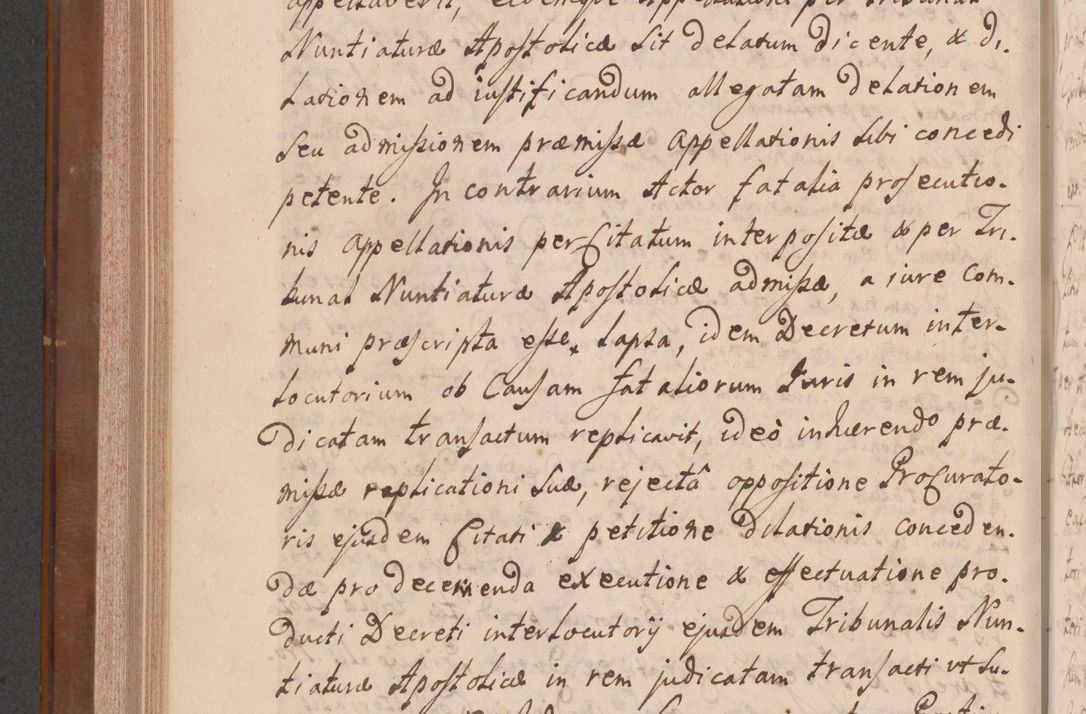 appellaverit, eidemque Appellationi per Tribunal
Nuntiaturæ Apostolicæ sit delatum dicente, & di-
lationem ad iustificandum allegatam delationem
seu admissionem præmissæ appellationis sibi concedi
petente. In contrarium Actor fatalia prosecutio-
nis appellationis per Citatum interpositæ & per Tri-
bunal Nuntiaturæ Apostolicæ admissæ, a iure com-
muni præscripta esse lapsa, idem Decretum inter-
locutorium ob Causam fataliorum Juris in rem ju-
dicatam transactum replicavit, ideò inhærendo præ-
missæ replicationi suæ, rejectâ oppositione Procurato-
ris ejusdem Citati & petitione dilationis conceden-
dæ pro decernenda executione & effectuatione pro-
ducti Decreti interlocutorij ejusdem Tribunalis Nun-
tiaturæ Apostolicæ in rem judicatam transacti ut su-